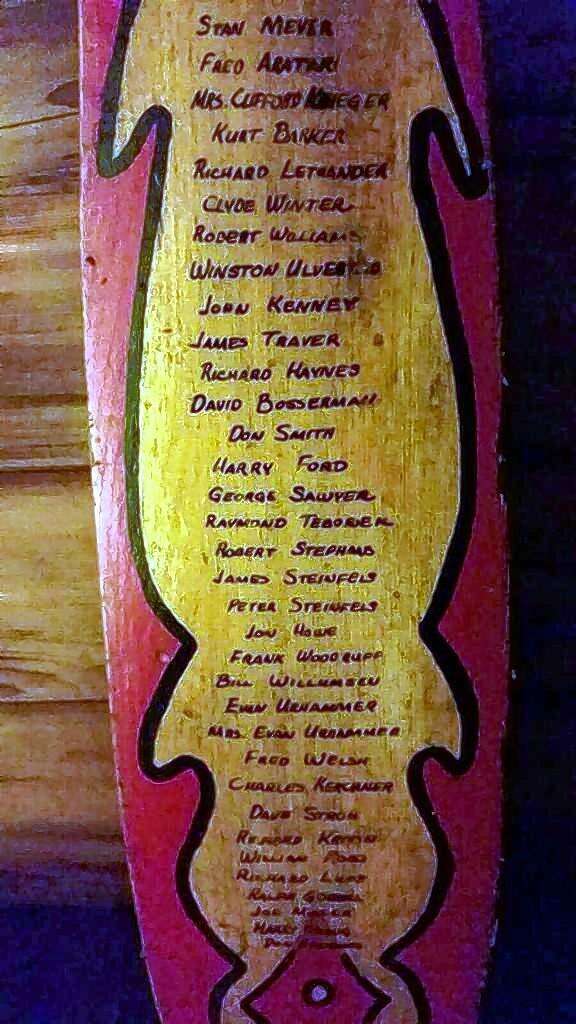 STAN MEYER
FRED ARATARI
MRS. CLIFFORD KRUEGER
KURT BARKER
RICHARD LETHANDER
CLYDE WINTER
ROBERT WILLIAMS
WINSTON
JOHN KENNEY
JAMES TRAVER
RICHARD HAYNES
DAVID BOSSERMAN
DON SMITH
HARRY FORD
GEORGE SAWYER
RAYMOND
ROBERT STEPHENS
JAMES STEINFELS
PETER STEINFELS
JON HOWE
FRANK WOODRUFF
BILL WILLUMSEN
EVEN URHAMMER
MRS. EVAN URHAMMER
FRED WELSH
CHARLES KERCHNER
DAVE STROH
RICHARD
WILLIAM
RICHARD
RALPH
JOE
HARRY